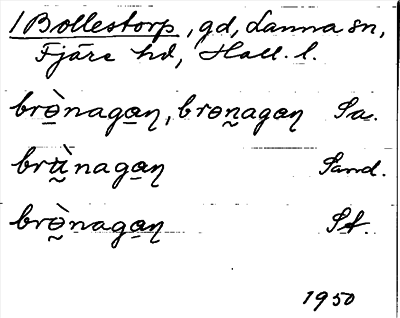 1 Bollestorp, gd, Lanna sn,
Fjäre hd, Hall. l.
brɵ̀nagaɳ, brɵnagaɳ Sa.
brʉ̀nagaɳ Sand.
brɵ̀nagaɳ St.
1950